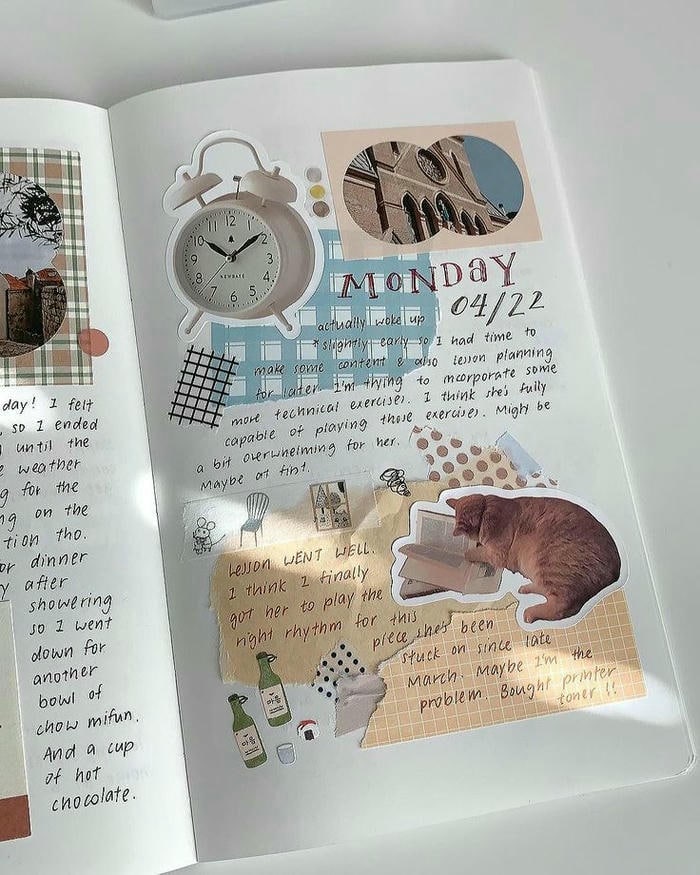 day! I felt
, so I ended
until the
weather
g for the
ng on the
tion tho.
or dinner
y after
showering
so I went
down for
another
bowl of
chow mifun.
And a cup
of hot
chocolate.
12
1
2
3
4
5
6
7
8
9
10
11
NEWGATE
MONDAY
04/22
actually woke up
*slightly early so I had time to
make some content & also lesson planning
for later. I'm trying to incorporate some
more technical exercises. I think she's fully
capable of playing those exercises. Might be
a bit overwhelming for her.
Maybe at first.
Lesson WENT WELL.
I think I finally
got her to play the
right rhythm for this
piece she's been
stuck on since late
March. Maybe I'm the
problem. Bought printer
toner !!
마음
마음